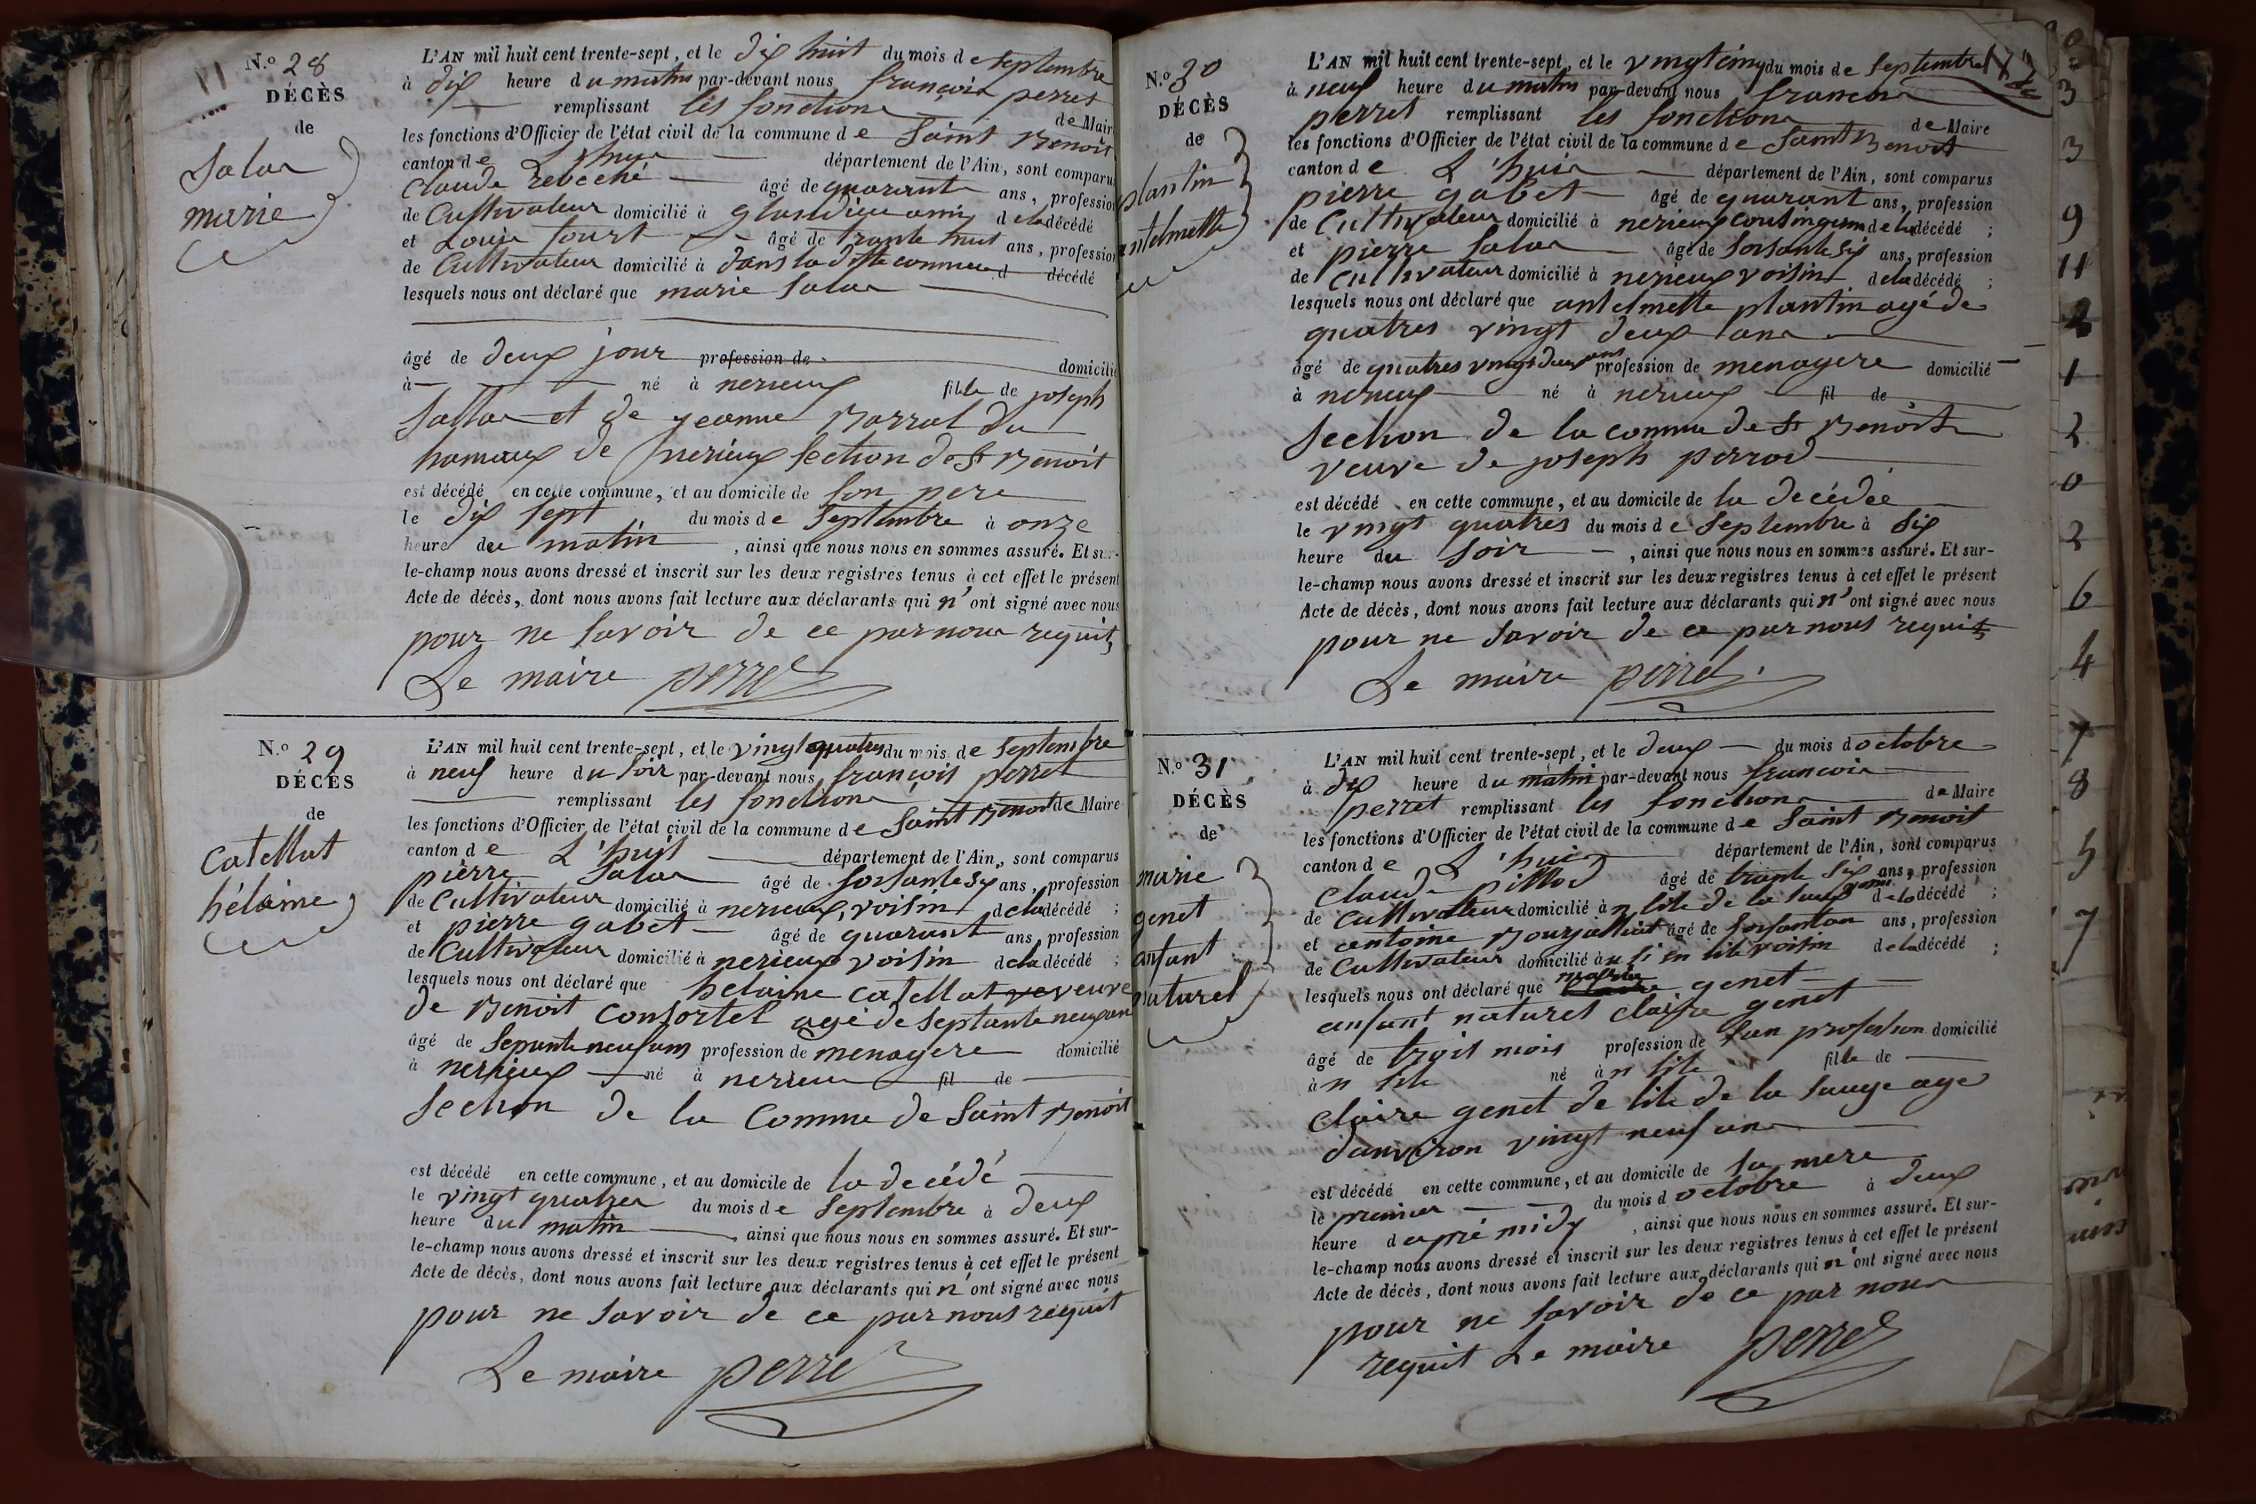 N.º 28
DÉCÈS
de
Salar
marie
L'AN mil huit cent trente-sept, et le dix huit du mois de Septembre
à dix heure du matin par-devant nous françois perret
remplissant les fonctions de Maire
les fonctions d'Officier de l'état civil de la commune de Saint Benoit
canton de L'huis département de l'Ain, sont comparus
Claude âgé de quarante ans, profession
de Cultivateur domicilié à de la décédé
et Louis âgé de trante huit ans, profession
de Cultivateur domicilié à dans la ditte commune d décédé
lesquels nous ont déclaré que marie Salar
âgé de deux jour profession de domicilié
à né à nerieux fille de joseph
Sallar et de jeanne Barral du
hamaux de nerieux Section de St Benoit
est décédé en cette commune, et au domicile de Son pere
le dix Sept du mois de Septembre à onze
heure du matin, ainsi que nous nous en sommes assuré. Et sur-
le-champ nous avons dressé et inscrit sur les deux registres tenus à cet effet le présent
Acte de décès, dont nous avons fait lecture aux déclarants qui n'ont signé avec nous
pour ne Savoir de ce par nous requit
Le maire perret
N.º 29
DÉCÈS
de
Catellat
hélaine
L'AN mil huit cent trente-sept, et le vingt quatres du mois de Septembre
à neuf heure du Soir par-devant nous françois perret
remplissant les fonctions de Maire
les fonctions d'Officier de l'état civil de la commune de Saint Benoit
canton de L'huis département de l'Ain, sont comparus
pierre Salar âgé de Soisante Six ans, profession
de Cultivateur domicilié à nerieux, voisin de la décédé ;
et pierre gabet âgé de quarant ans, profession
de Cultivateur domicilié à nerieux voisin de la décédé ;
lesquels nous ont déclaré que helaine Catellat veuve
de Benoit Confortel agé de Septante neuf an
âgé de Sepante neuf ans profession de menagere domicilié
à nerieux né à nerieux fil de
Section de la Commue de Saint Benoit
est décédé en cette commune, et au domicile de la decédé
le vingt quatres du mois de Septembre à deux
heure du matin, ainsi que nous nous en sommes assuré. Et sur-
le-champ nous avons dressé et inscrit sur les deux registres tenus à cet effet le présent
Acte de décès, dont nous avons fait lecture aux déclarants qui n'ont signé avec nous
pour ne Savoir de ce par nous requit
Le maire perret
N.º 30
DÉCÈS
de
plantin
antelmette
L'AN mil huit cent trente-sept, et le vingt cinq du mois de Septembre
à neuf heure du matin par-devant nous francois
perret remplissant les fonctions de Maire
les fonctions d'Officier de l'état civil de la commune de Saint Benoit
canton de L'huis département de l'Ain, sont comparus
pierre gabet âgé de quarant ans, profession
de Cultivateur domicilié à nerieux cousin germ de la décédé ;
et pierre Salar âgé de Soisante Six ans, profession
de Cultivateur domicilié à nerieux voisin de la décédé ;
lesquels nous ont déclaré que antelmette plantin agé de
quatres vingt deux ans
âgé de quatres vingt deux ans profession de menagere domicilié
à nerieux né à nerieux fil de
Section de la commue de St Benoit
veuve de joseph perrod
est décédé en cette commune, et au domicile de la decédée
le vingt quatres du mois de Septembre à Six
heure du Soir, ainsi que nous nous en sommes assuré. Et sur-
le-champ nous avons dressé et inscrit sur les deux registres tenus à cet effet le présent
Acte de décès, dont nous avons fait lecture aux déclarants qui n'ont signé avec nous
pour ne Savoir de ce par nous requit
Le maire perret
N.º 31
DÉCÈS
de
marie
genet
anfant
naturel
L'AN mil huit cent trente-sept, et le deux du mois d octobre
à dix heure du matin par-devant nous francois
perret remplissant les fonctions de Maire
les fonctions d'Officier de l'état civil de la commune de Saint Benoit
canton de L'huis département de l'Ain, sont comparus
Claude pittod âgé de trante Six ans, profession
de Cultivateur domicilié à lile de la Sauge de la décédé ;
et antoine âgé de Soisante ans, profession
de Cultivateur domicilié à lile voisin de la décédé ;
lesquels nous ont déclaré que marie genet
anfant naturel claire genet
âgé de trois mois profession de San profession domicilié
à lile né à lile fille de
Claire genet de lile de la Sauge age
danviron vingt neuf ans
est décédé en cette commune, et au domicile de Sa mere
le premier du mois d octobre à deux
heure d apré midy, ainsi que nous nous en sommes assuré. Et sur-
le-champ nous avons dressé et inscrit sur les deux registres tenus à cet effet le présent
Acte de décès, dont nous avons fait lecture aux déclarants qui n'ont signé avec nous
pour ne Savoir de ce par nous
requit Le maire perret
3
3
9
11
2
1
2
0
2
6
4
7
8
5
7